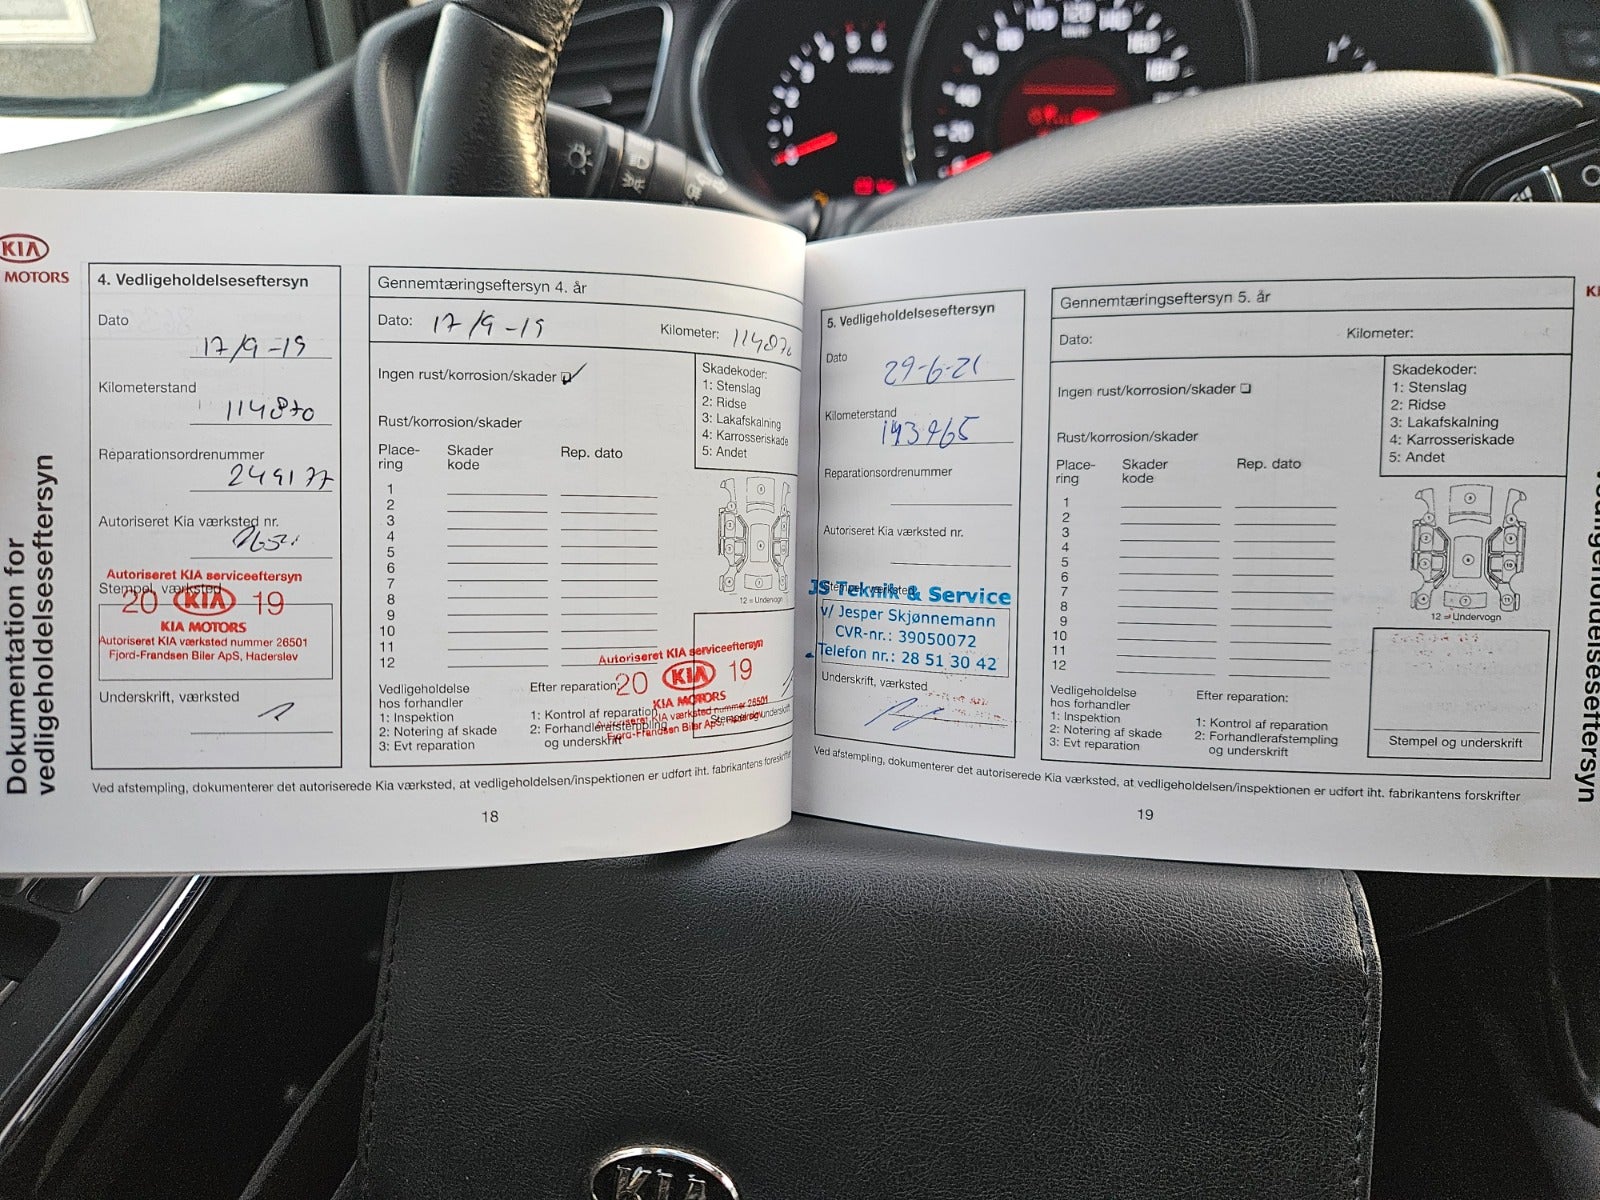 KIA
MOTORS
Dokumentation for
vedligeholdelseseftersyn
4. Vedligeholdelseseftersyn
Dato
17/9-19
Kilometerstand
114870
Reparationsordrenummer
249177
Autoriseret Kia værksted nr.
Autoriseret KIA serviceeftersyn
Stempel, værksted
20 KIA 19
KIA MOTORS
Autoriseret KIA værksted nummer 26501
Fjord-Frandsen Biler ApS, Haderslev
Underskrift, værksted
Gennemtæringseftersyn 4. år
Dato: 17/9-19 Kilometer: 114870
Ingen rust/korrosion/skader
Rust/korrosion/skader
Place-
ring
Skader
kode
Rep. dato
1
2
3
4
5
6
7
8
9
10
11
12
Skadekoder:
1: Stenslag
2: Ridse
3: Lakafskalning
4: Karrosseriskade
5: Andet
12 = Undervogn
Vedligeholdelse
hos forhandler
1: Inspektion
2: Notering af skade
3: Evt reparation
Efter reparation:
1: Kontrol af reparation
2: Forhandlerafstempling
og underskrift
Autoriseret KIA serviceeftersyn
20 KIA 19
KIA MOTORS
Autoriseret KIA værksted nummer 26501
Fjord-Frandsen Biler ApS, Haderslev
Stempel og underskrift
Ved afstempling, dokumenterer det autoriserede Kia værksted, at vedligeholdelsen/inspektionen er udført iht. fabrikantens forskrifter
18
5. Vedligeholdelseseftersyn
Dato
29-6-21
Kilometerstand
193465
Reparationsordrenummer
Autoriseret Kia værksted nr.
Stempel, værksted
JS Teknik & Service
v/ Jesper Skjønnemann
CVR-nr.: 39050072
Telefon nr.: 28 51 30 42
Underskrift, værksted
Gennemtæringseftersyn 5. år
Dato: Kilometer:
Ingen rust/korrosion/skader
Rust/korrosion/skader
Place-
ring
Skader
kode
Rep. dato
1
2
3
4
5
6
7
8
9
10
11
12
Skadekoder:
1: Stenslag
2: Ridse
3: Lakafskalning
4: Karrosseriskade
5: Andet
12 = Undervogn
Vedligeholdelse
hos forhandler
1: Inspektion
2: Notering af skade
3: Evt reparation
Efter reparation:
1: Kontrol af reparation
2: Forhandlerafstempling
og underskrift
Stempel og underskrift
Ved afstempling, dokumenterer det autoriserede Kia værksted, at vedligeholdelsen/inspektionen er udført iht. fabrikantens forskrifter
19
vedligeholdelseseftersyn
KIA